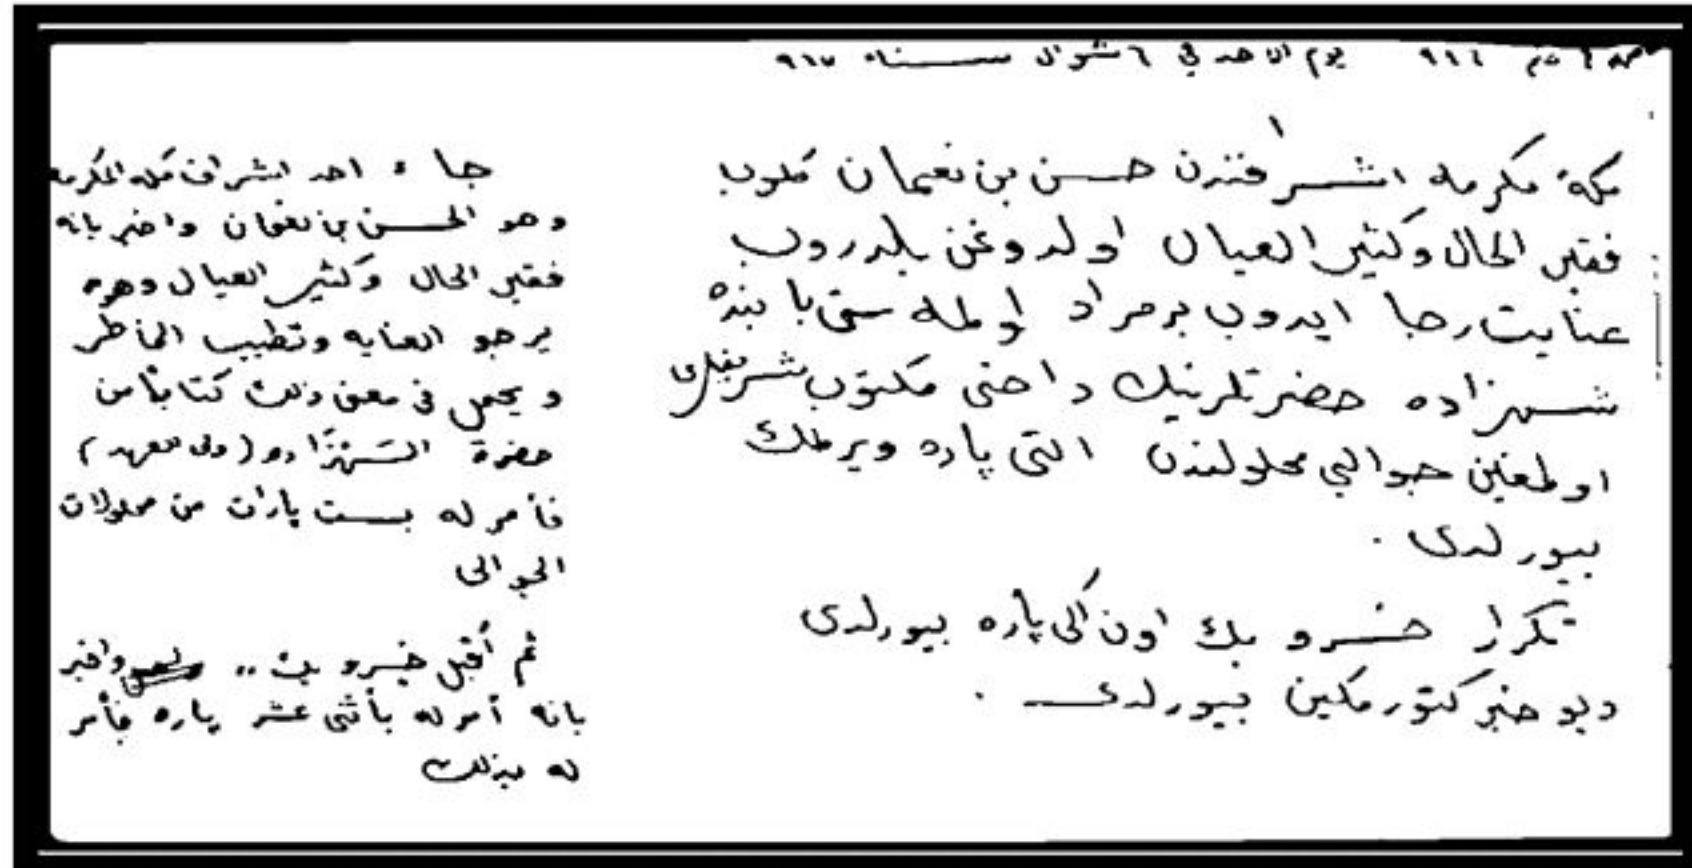 يوم الاحد في ٦ شوال سنه ٩٦٧
مكهٔ مكرمه اشرفندن حسن بن نعمان كلوب
فقير الحال وكثير العيال اولدوغن بلدروب
عنايت رجا ايدوب برمراد اولمه سى بابنده
شهزاده حضرتلرينيك داخى مكتوب شريفلرى
اولمغين جوالي محلولندن التى پاره ويرملك
بيورلدى .
تكرار خسرو بك اون اكى پاره بيورلدى
ديو خبر كتورمكين بيورلدى .
جاء احد اشراف مكه المكرمه
وهو الحسن بن نعمان واخبر بانه
فقير الحال وكثير العيال وهو
يرجو العنايه وتطييب الخاطر
ويحمل في معنى ذلك كتابًا من
حضرة الشهزاده (ولى العهد)
فأمر له بست پارات من محلولات
الجوالى
ثم أقبل خسرو بك .. واخبر
بانه أمر له بأثنى عشر پاره فأمر
له بذلك